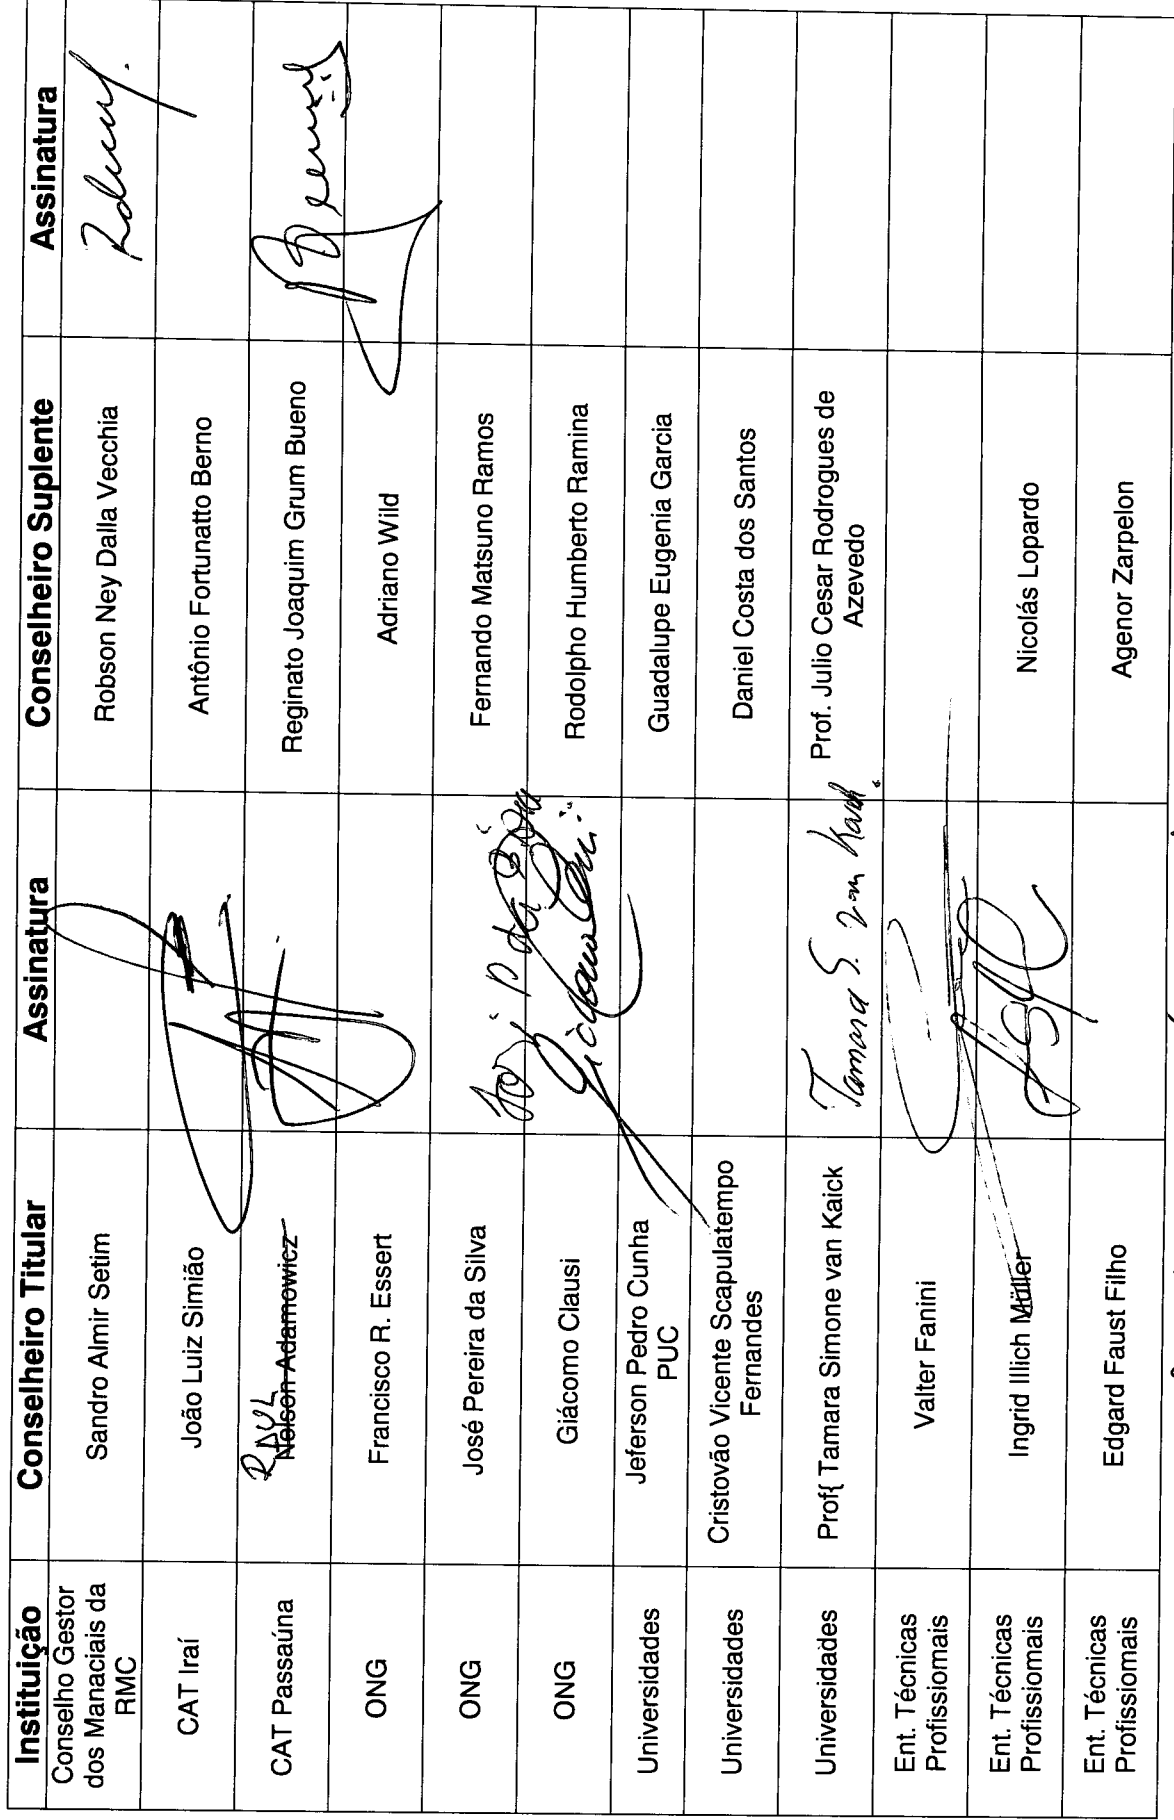 Instituição
Conselheiro Titular
Assinatura
Conselheiro Suplente
Assinatura
Conselho Gestor
dos Manaciais da
RMC
Sandro Almir Setim
Robson Ney Dalla Vecchia
CAT Iraí
João Luiz Simião
Antônio Fortunatto Berno
CAT Passaúna
RAUL
Nelson Adamowicz
Reginato Joaquim Grum Bueno
ONG
Francisco R. Essert
Adriano Wild
ONG
José Pereira da Silva
José P da Silva
Fernando Matsuno Ramos
ONG
Giácomo Clausi
Rodolpho Humberto Ramina
Universidades
Jeferson Pedro Cunha
PUC
Guadalupe Eugenia Garcia
Universidades
Cristovão Vicente Scapulatempo
Fernandes
Daniel Costa dos Santos
Universidades
Prof{ Tamara Simone van Kaick
Tamara S. van Kaick
Prof. Julio Cesar Rodrogues de
Azevedo
Ent. Técnicas
Profissiomais
Valter Fanini
Ent. Técnicas
Profissiomais
Ingrid Illich Müller
Nicolás Lopardo
Ent. Técnicas
Profissiomais
Edgard Faust Filho
Agenor Zarpelon